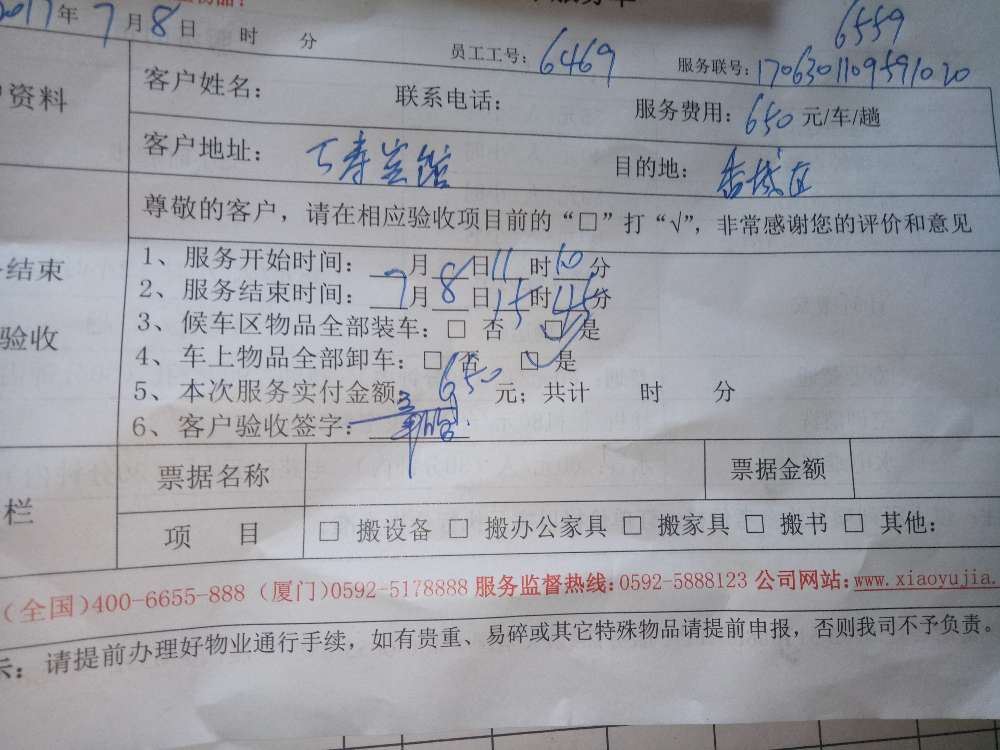 2017年7月8日 时 分
员工工号: 6469
6559
服务联号: 1706301109591020
户资料
客户姓名: 联系电话: 服务费用: 650 元/车/趟
客户地址: 万寿宾馆 目的地:
尊敬的客户，请在相应验收项目前的“□”打“√”，非常感谢您的评价和意见
结束
验收
1、服务开始时间: 月 8 日 11 时 10 分
2、服务结束时间: 7 月 8 日 15 时 45 分
3、候车区物品全部装车: □ 否 ☑ 是
4、车上物品全部卸车: □ 否 ☑ 是
5、本次服务实付金额: 650 元; 共计 时 分
6、客户验收签字:
票据名称 票据金额
栏
项 目 □ 搬设备 □ 搬办公家具 □ 搬家具 □ 搬书 □ 其他:
(全国)400-6655-888 (厦门)0592-5178888 服务监督热线: 0592-5888123 公司网站: www.xiaoyujia.
示: 请提前办理好物业通行手续，如有贵重、易碎或其它特殊物品请提前申报，否则我司不予负责。